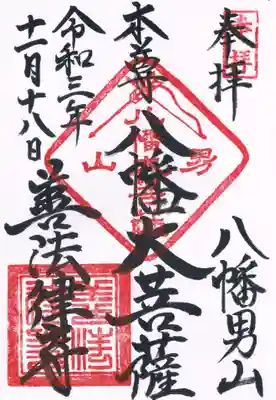 奉拝
八幡男山
本尊八幡大菩薩
令和三年
十一月十八日
善法律寺
男山